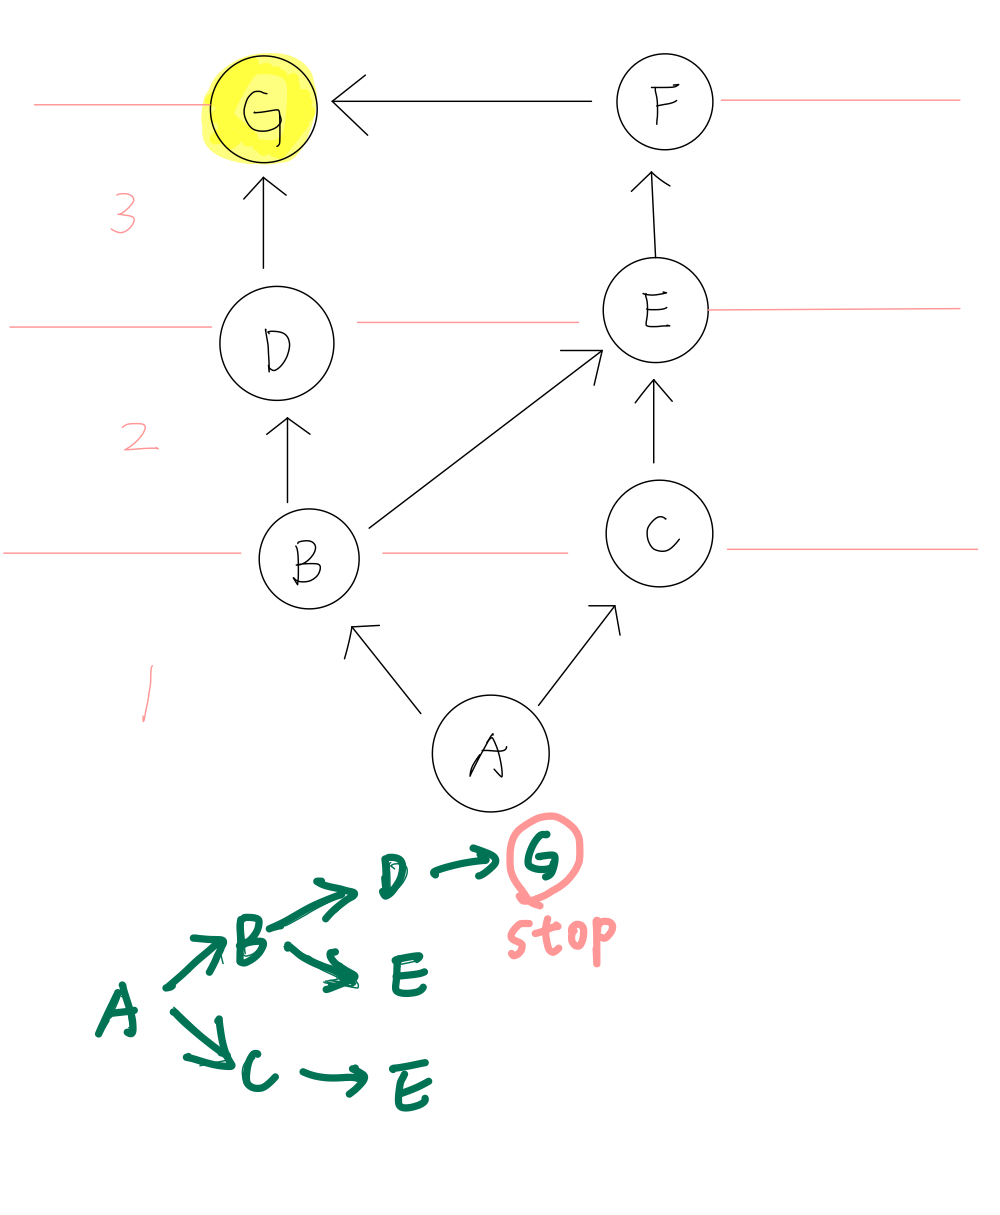 G F
3
D E
2
B C
1
A
D G
stop
B E
A
C E